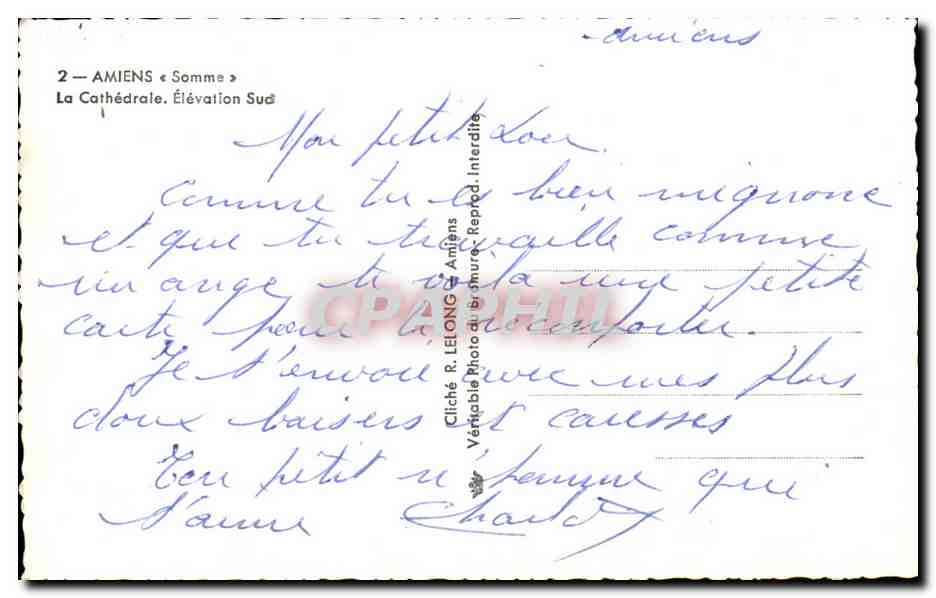 Amiens
2 — AMIENS « Somme »
La Cathédrale. Élévation Sud
Mon petit Lou.
Comme tu es bien mignone
et que tu travaille comme
un ange, te voila une petite
carte pour te reconforter.
Je t'envoie avec mes plus
doux baisers et caresses
Ton petit n'homme qui
t'aime Charlot
Cliché R. LELONG - Amiens
Véritable Photo du bromure - Reprod. Interdite
CPAPHIL